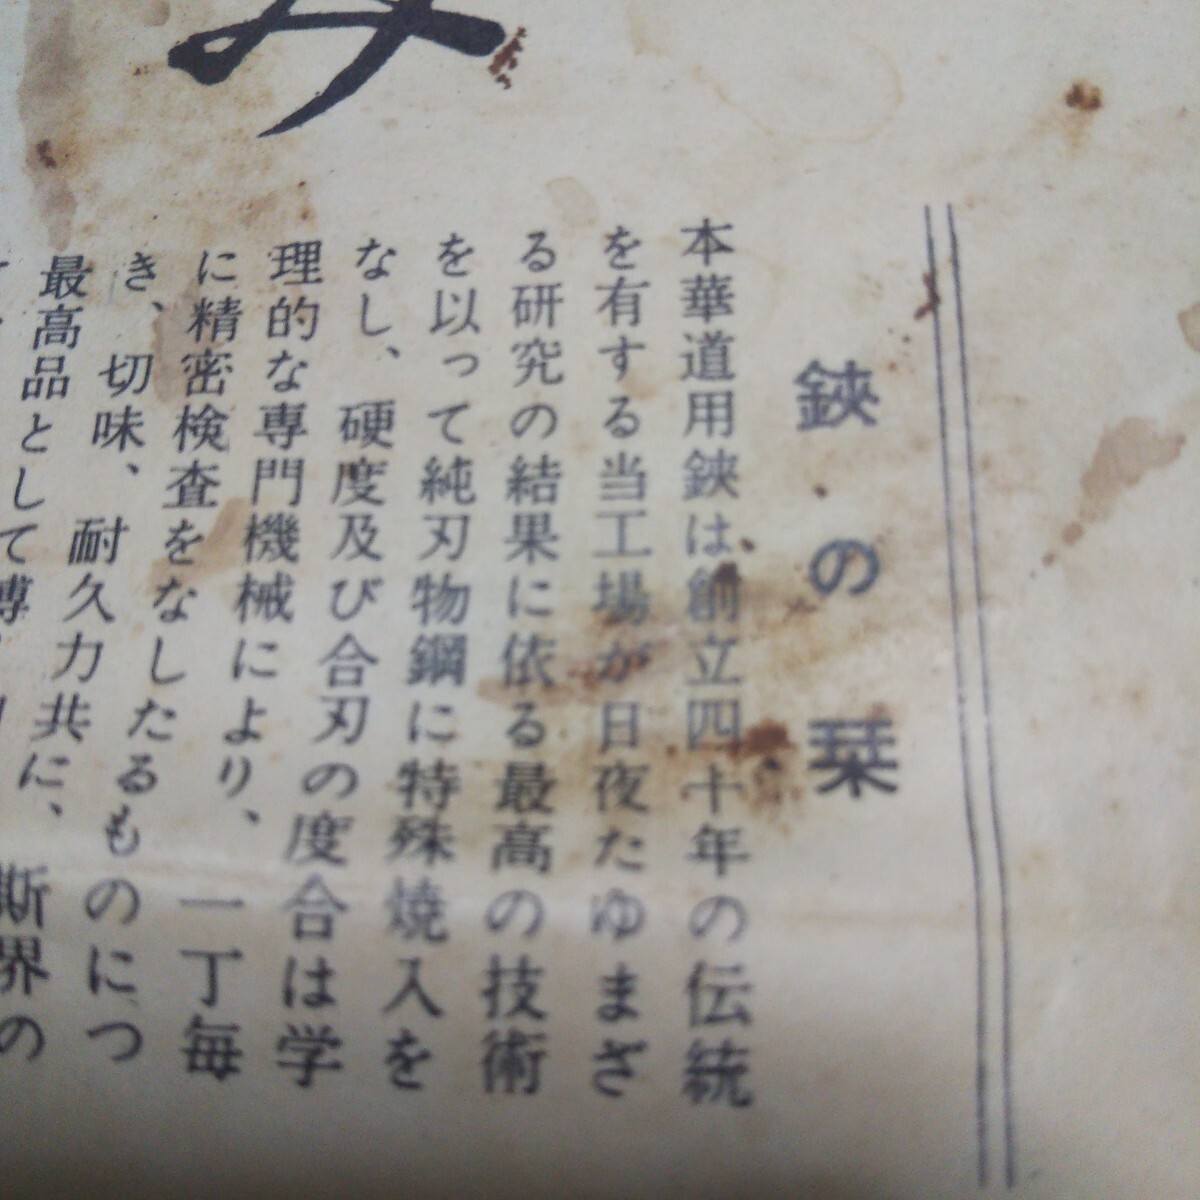 み
鋏の栞
本華道用鋏は創立四十年の伝統
を有する当工場が日夜たゆまざ
る研究の結果に依る最高の技術
を以って純刃物鋼に特殊焼入を
なし、硬度及び合刃の度合は学
理的な専門機械により、一丁毎
に精密検査をなしたるものにつ
き、切味、耐久力共に、斯界の
最高品として